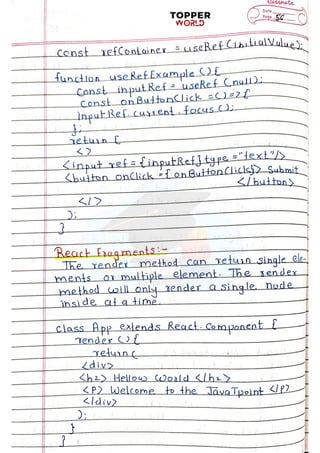 classmate
Date
Page 56
TOPPER
WORLD
const refContainer = useRef (initialValue);
function useRefExample () {
const inputRef = useRef (null);
const onButtonClick = () => {
inputRef. current. focus ();
};
return (
<>
<input ref = {inputRef} type = "text"/>
<button onClick = {onButtonClick}> Submit
</button>
</>
);
}
React Fragments:-
The render method can return single ele-
ments or multiple element. The render
method will only render a single node
inside at a time.
class App extends React. Component {
render () {
return (
<div>
<h2> Hellow World </h2>
<P> Welcome to the JavaTpoint </P>
</div>
);
}
}